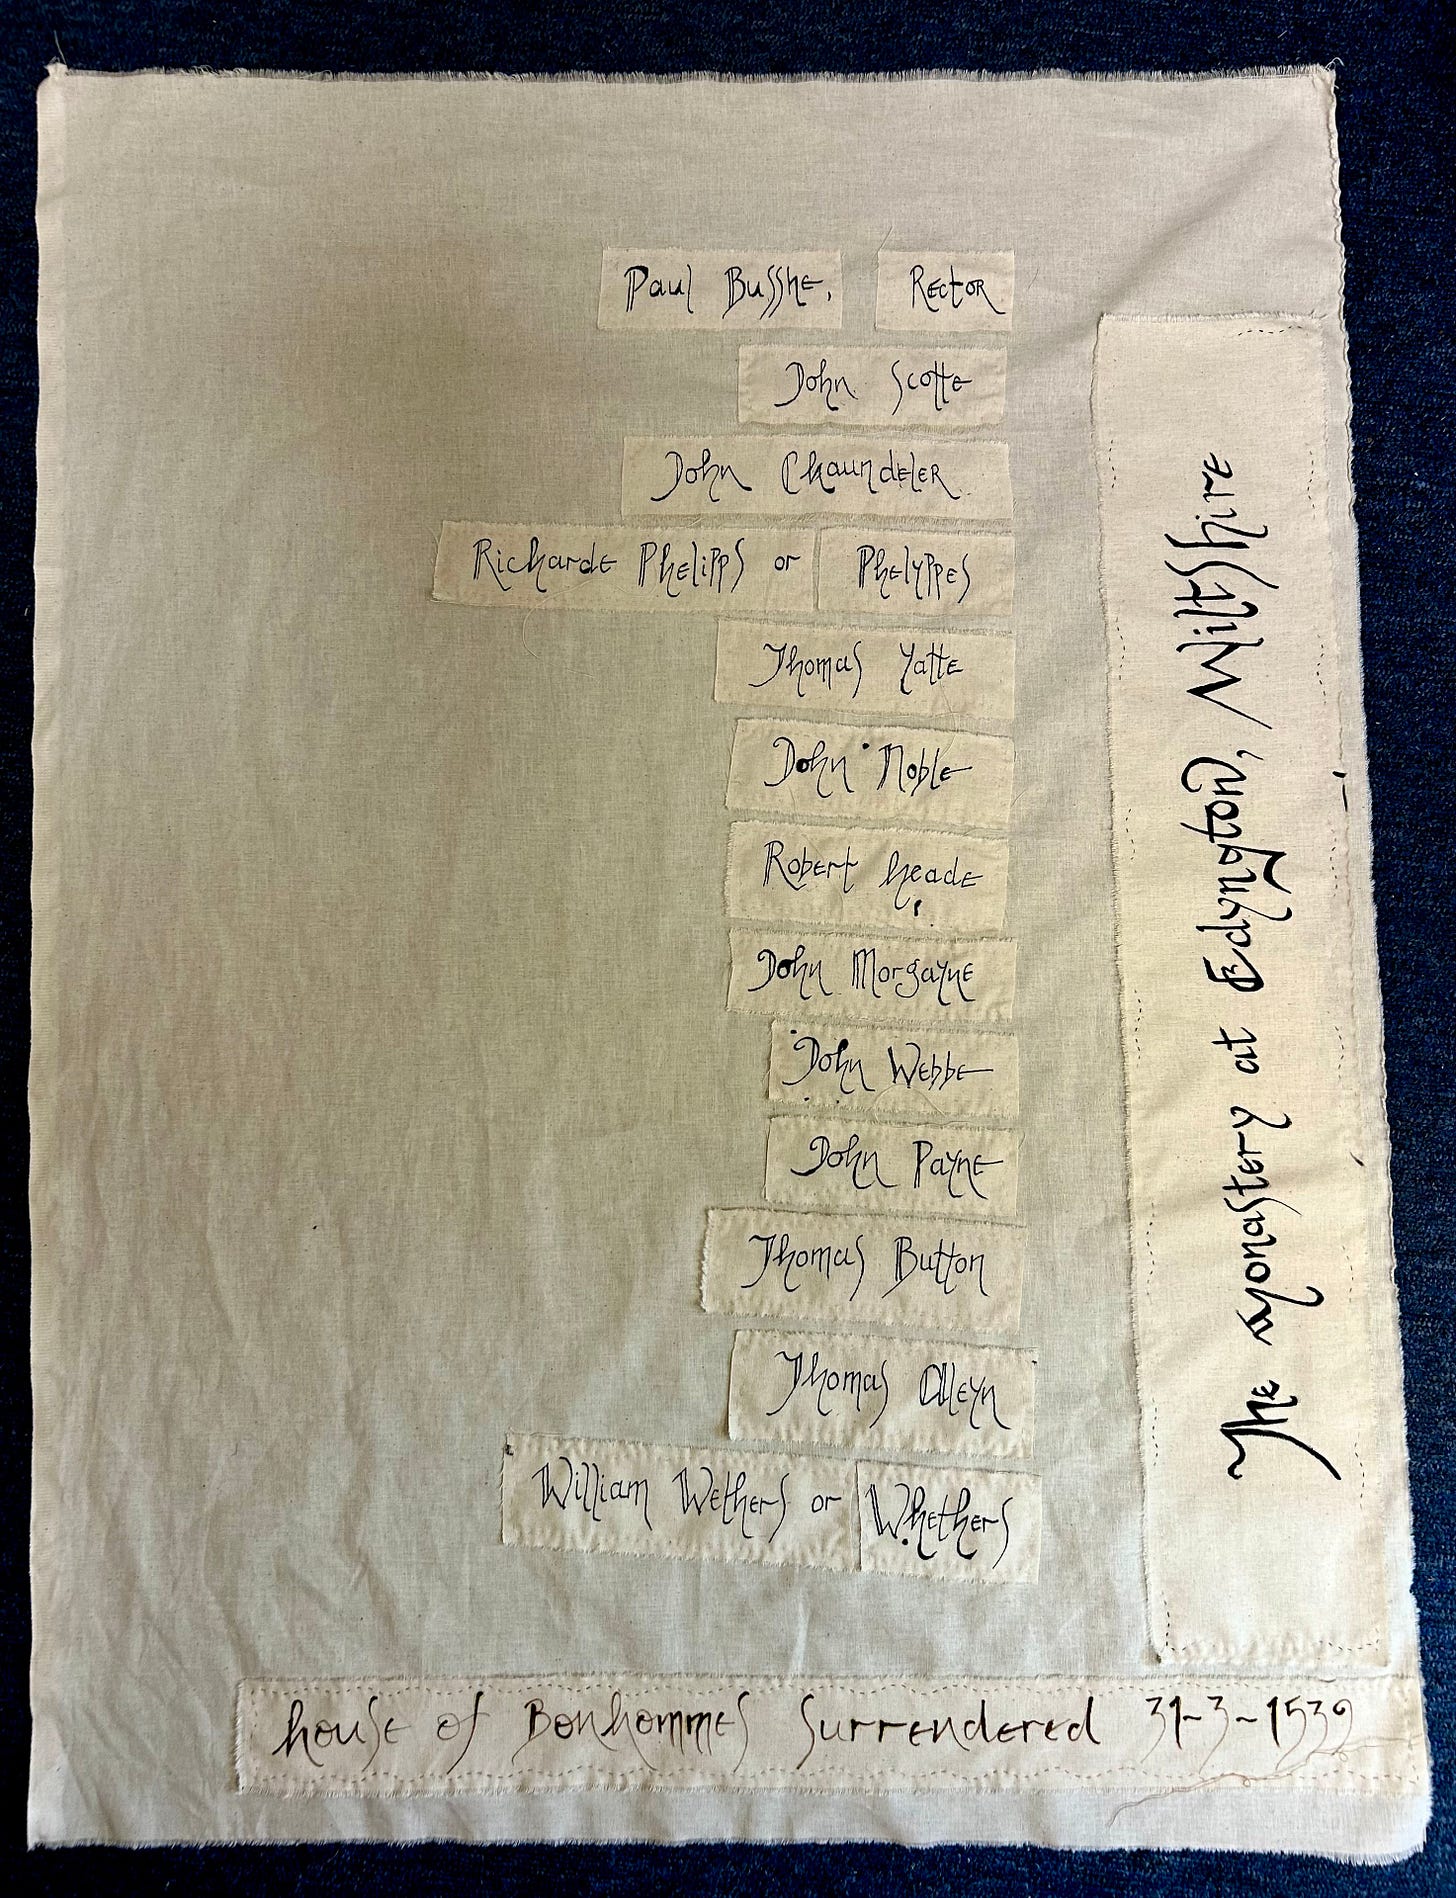 Paul Busshe, Rector
John Scotte
John Chaundeler
Richarde Phelipps or Phelyppes
Thomas Yatte
John Noble
Robert Heade
John Morgayne
John Webbe
John Payne
Thomas Button
Thomas Alleyn
William Wethers or Whethers
The Monastery at Edyngton, Wiltshire
House of Bonhommes Surrendered 31-3-1539